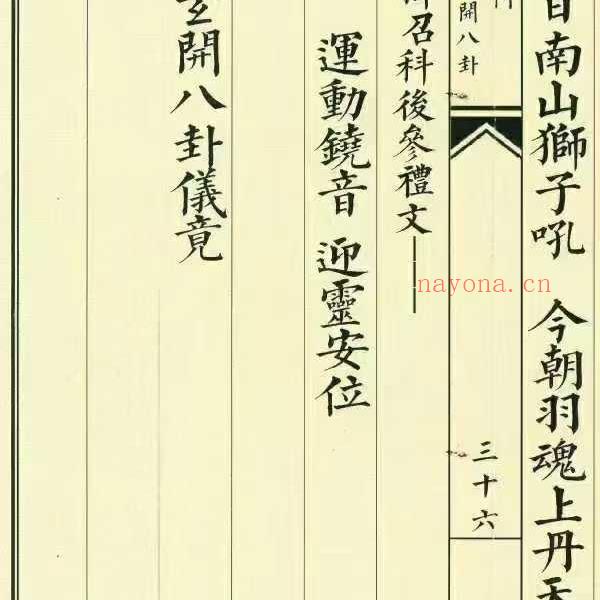 南山獅子吼 今朝羽魂上丹天
開八卦
三十六
召科後參禮文
運動鐃音 迎靈安位
玄開八卦儀竟
nayona.cn